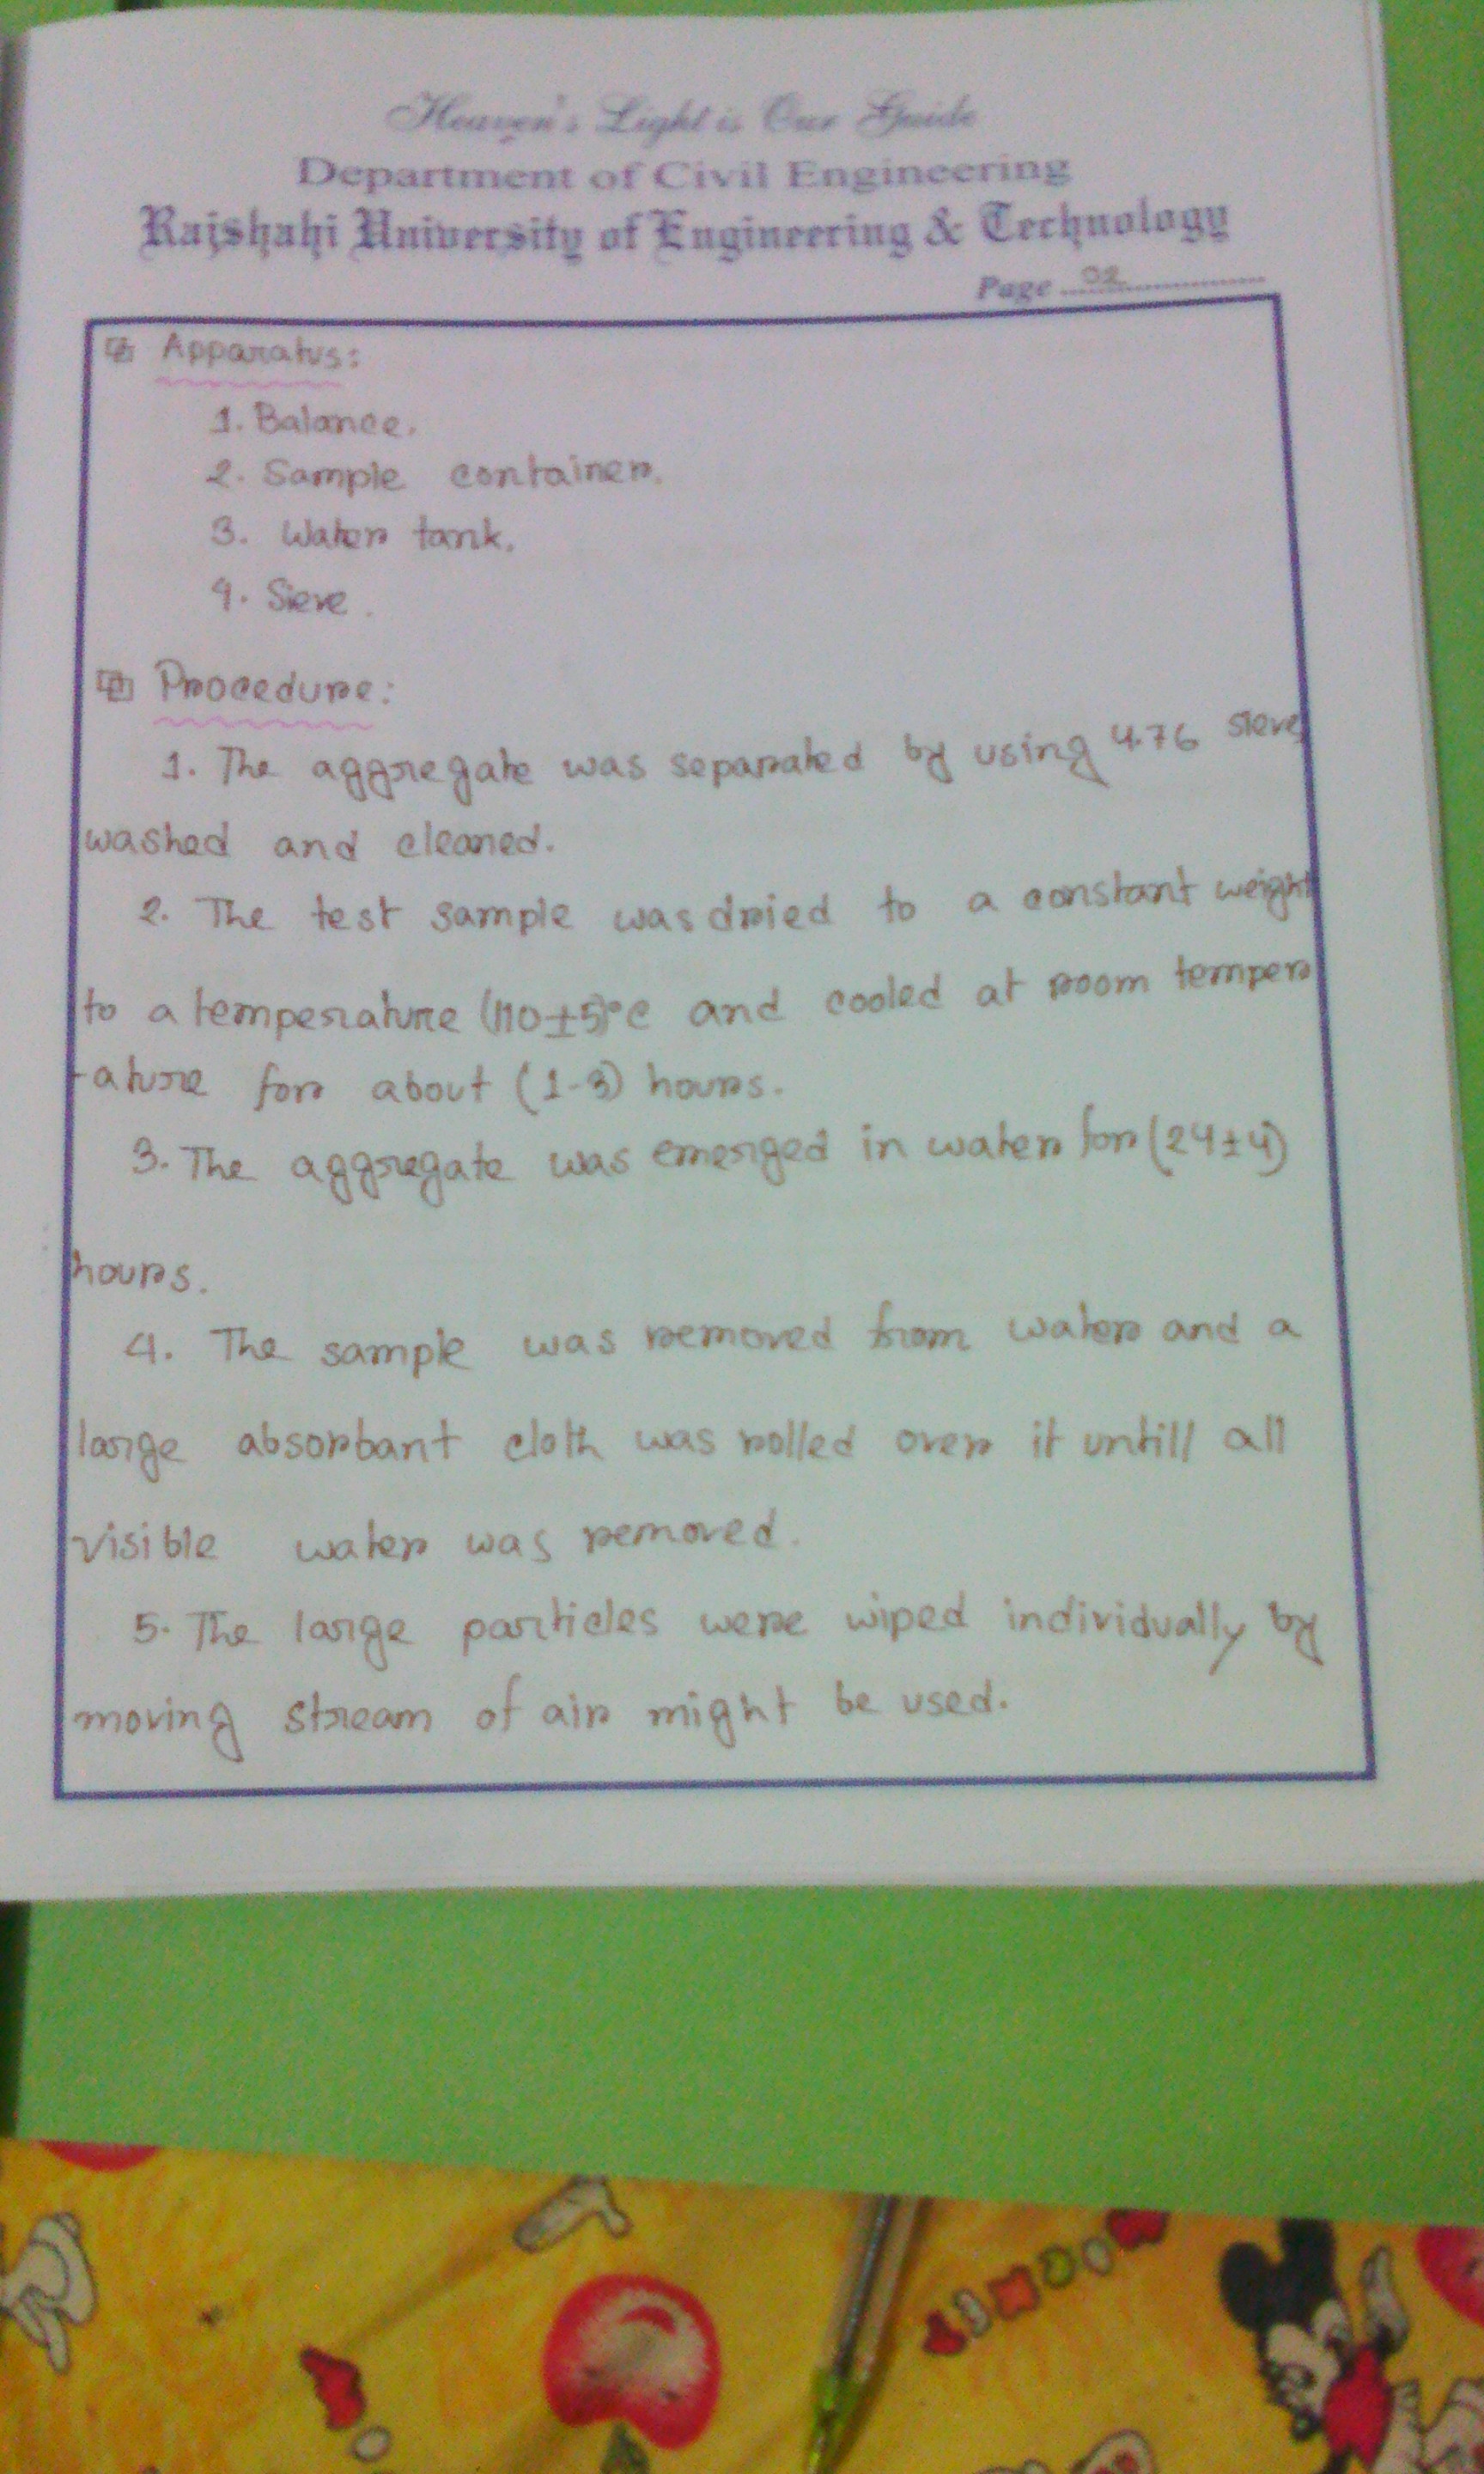 Heaven's Light is Our Guide
Department of Civil Engineering
Rajshahi University of Engineering & Technology
Page 02
Apparatus:
1. Balance.
2. Sample container.
3. Water tank.
4. Sieve.
Procedure:
1. The aggregate was separated by using 4.76 sieve,
washed and cleaned.
2. The test sample was dried to a constant weight
to a temperature (110±5)°c and cooled at room temper
-ature for about (1-3) hours.
3. The aggregate was emerged in water for (24±4)
hours.
4. The sample was removed from water and a
large absorbant cloth was rolled over it untill all
visible water was removed.
5. The large particles were wiped individually by
moving stream of air might be used.